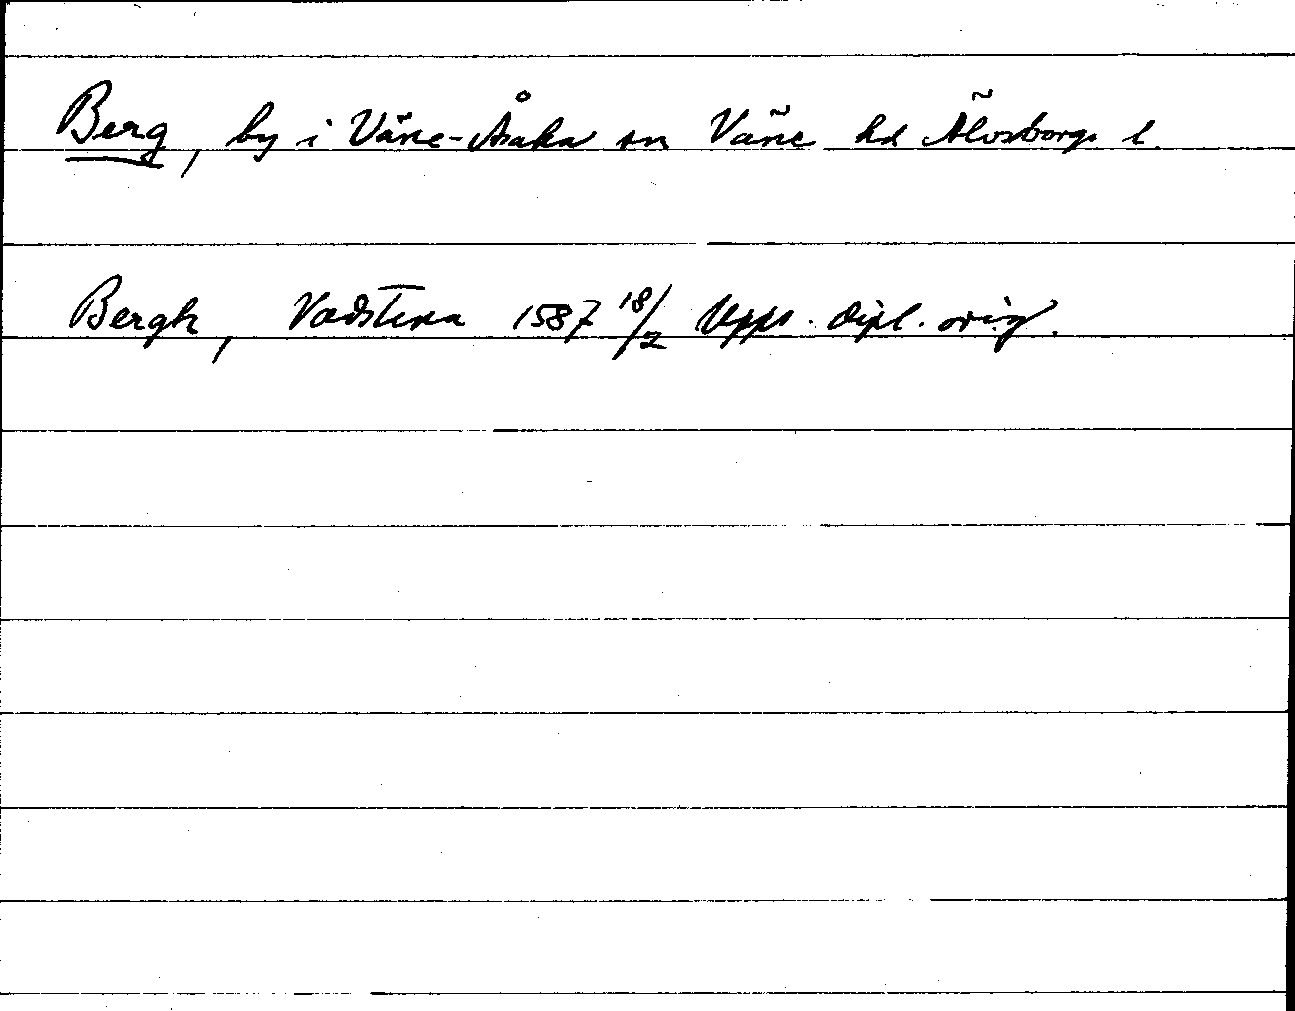 Berg, by i Väne-Åsaka sn Väne hd Älvsborgs l.
Bergh, Vadstena 1587 18/2 Upps. dipl. orig.